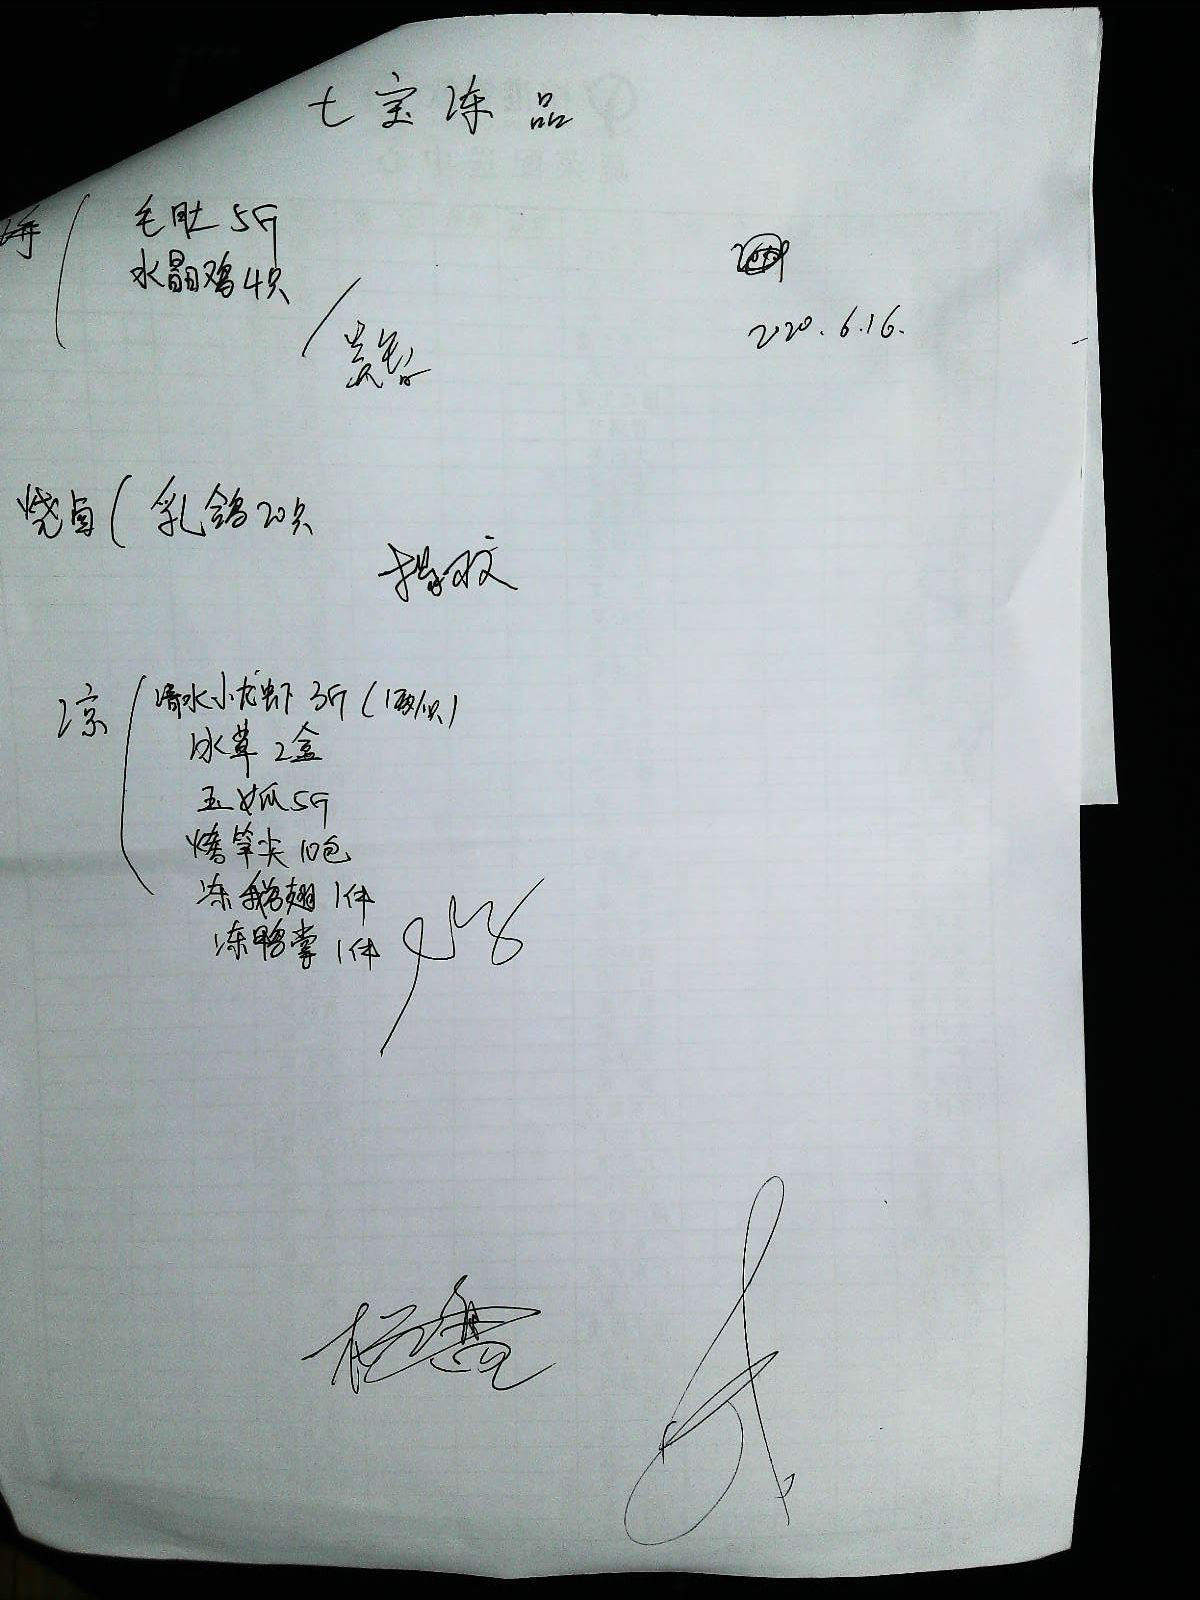 七宝冻品
海
毛肚5斤
水晶鸡4只
2020.6.16.
烧卤
乳鸽20只
凉
清水小龙虾 3斤
冰草 2盒
玉女瓜5斤
烤笋尖 10包
冻鹅翅 1件
冻鸭掌 1件